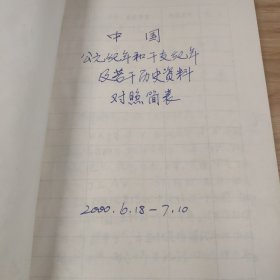 中国
公元纪年和干支纪年
及若干历史资料
对照简表
2000.6.18－7.10